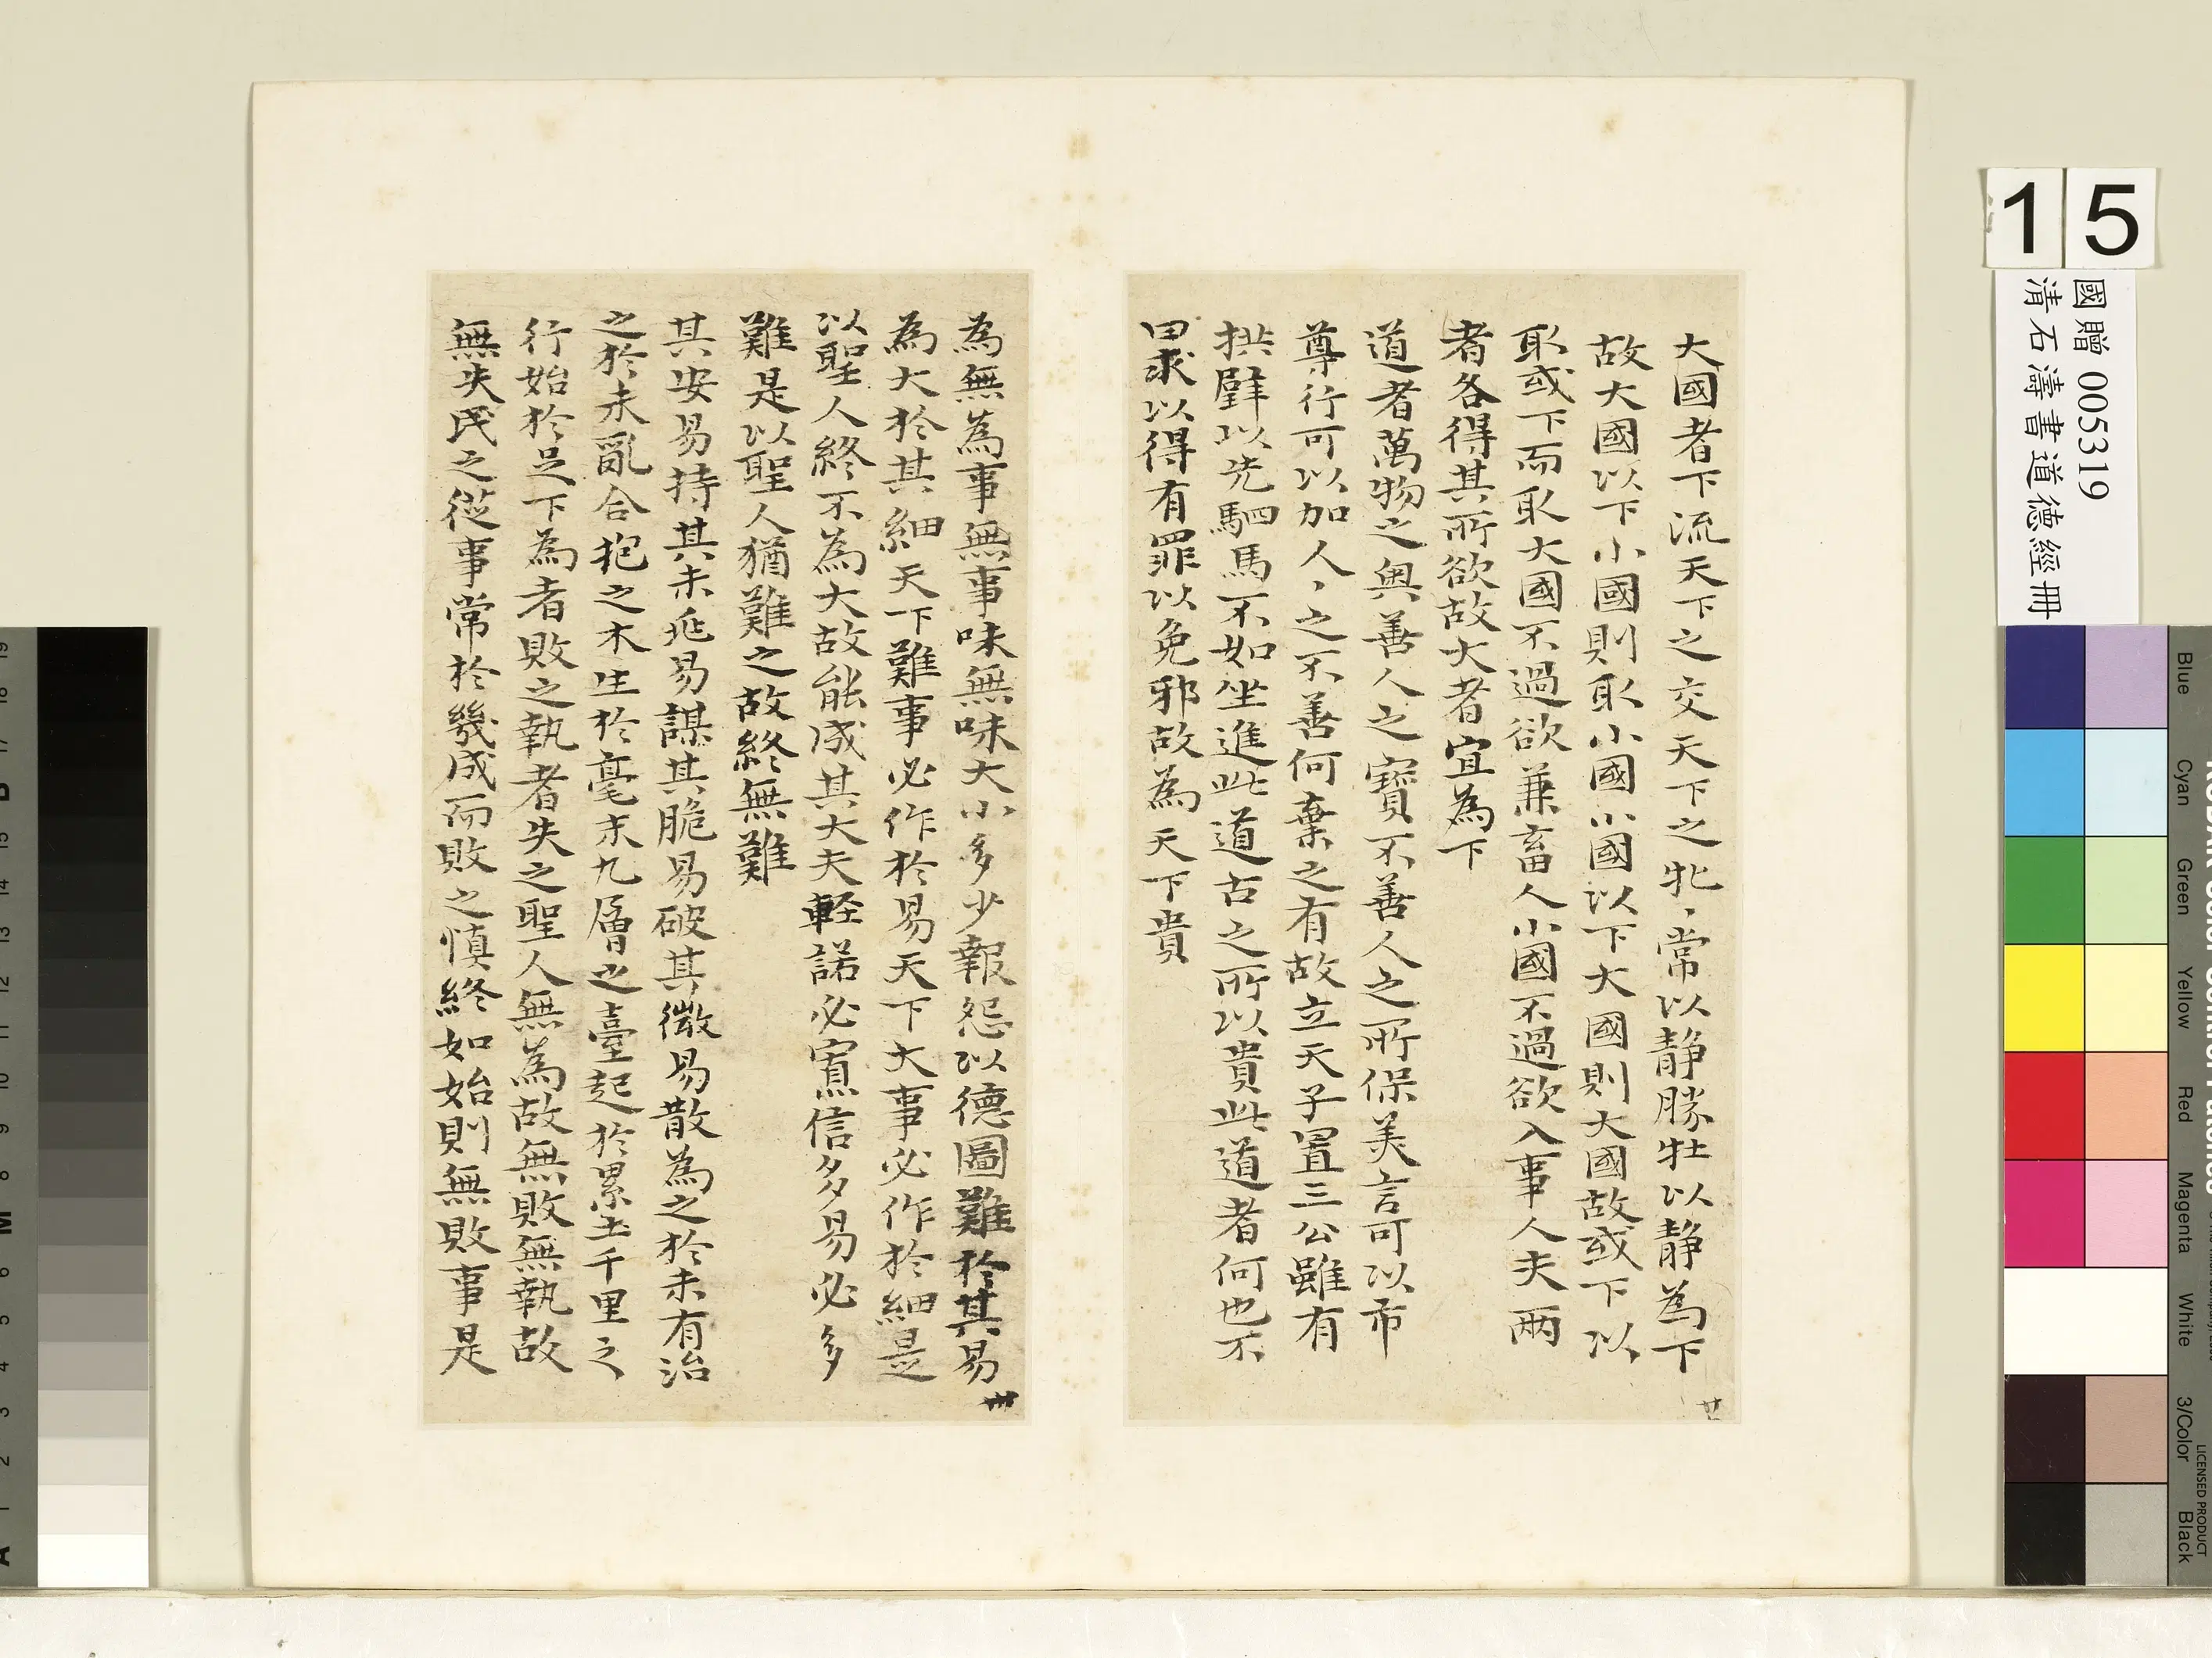 大國者下流天下之交天下之牝、常以静勝牡以静為下
故大國以下小國則取小國小國以下大國則大國故或下以
取或下而取大國不過欲兼畜人小國不過欲入事人夫兩
者各得其所欲故大者宜為下
道者萬物之奥善人之寶不善人之所保美言可以市
尊行可以加人、之不善何棄之有故立天子置三公雖有
拱璧以先駟馬不如坐進此道古之所以貴此道者何也不
曰求以得有罪以免邪故為天下貴
廿
為無為事無事味無味大小多少報怨以德圖難於其易
為大於其細天下難事必作於易天下大事必作於細是
以聖人終不為大故能成其大夫軽諾必寡信多易必多
難是以聖人猶難之故終無難
其安易持其未兆易謀其脆易破其微易散為之於未有治
之於未亂合抱之木生於毫末九層之臺起於累土千里之
行始於足下為者敗之執者失之聖人無為故無敗無執故
無失民之從事常於幾成而敗之慎終如始則無敗事是
卅
15
國贈 005319
清石濤書道德經冊
Blue
Cyan
Green
Yellow
Red
Magenta
White
3/Color
Black
LICENSED PRODUCT